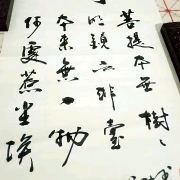 菩提本无樹
明鏡亦非臺
本來無一物
何處惹塵埃